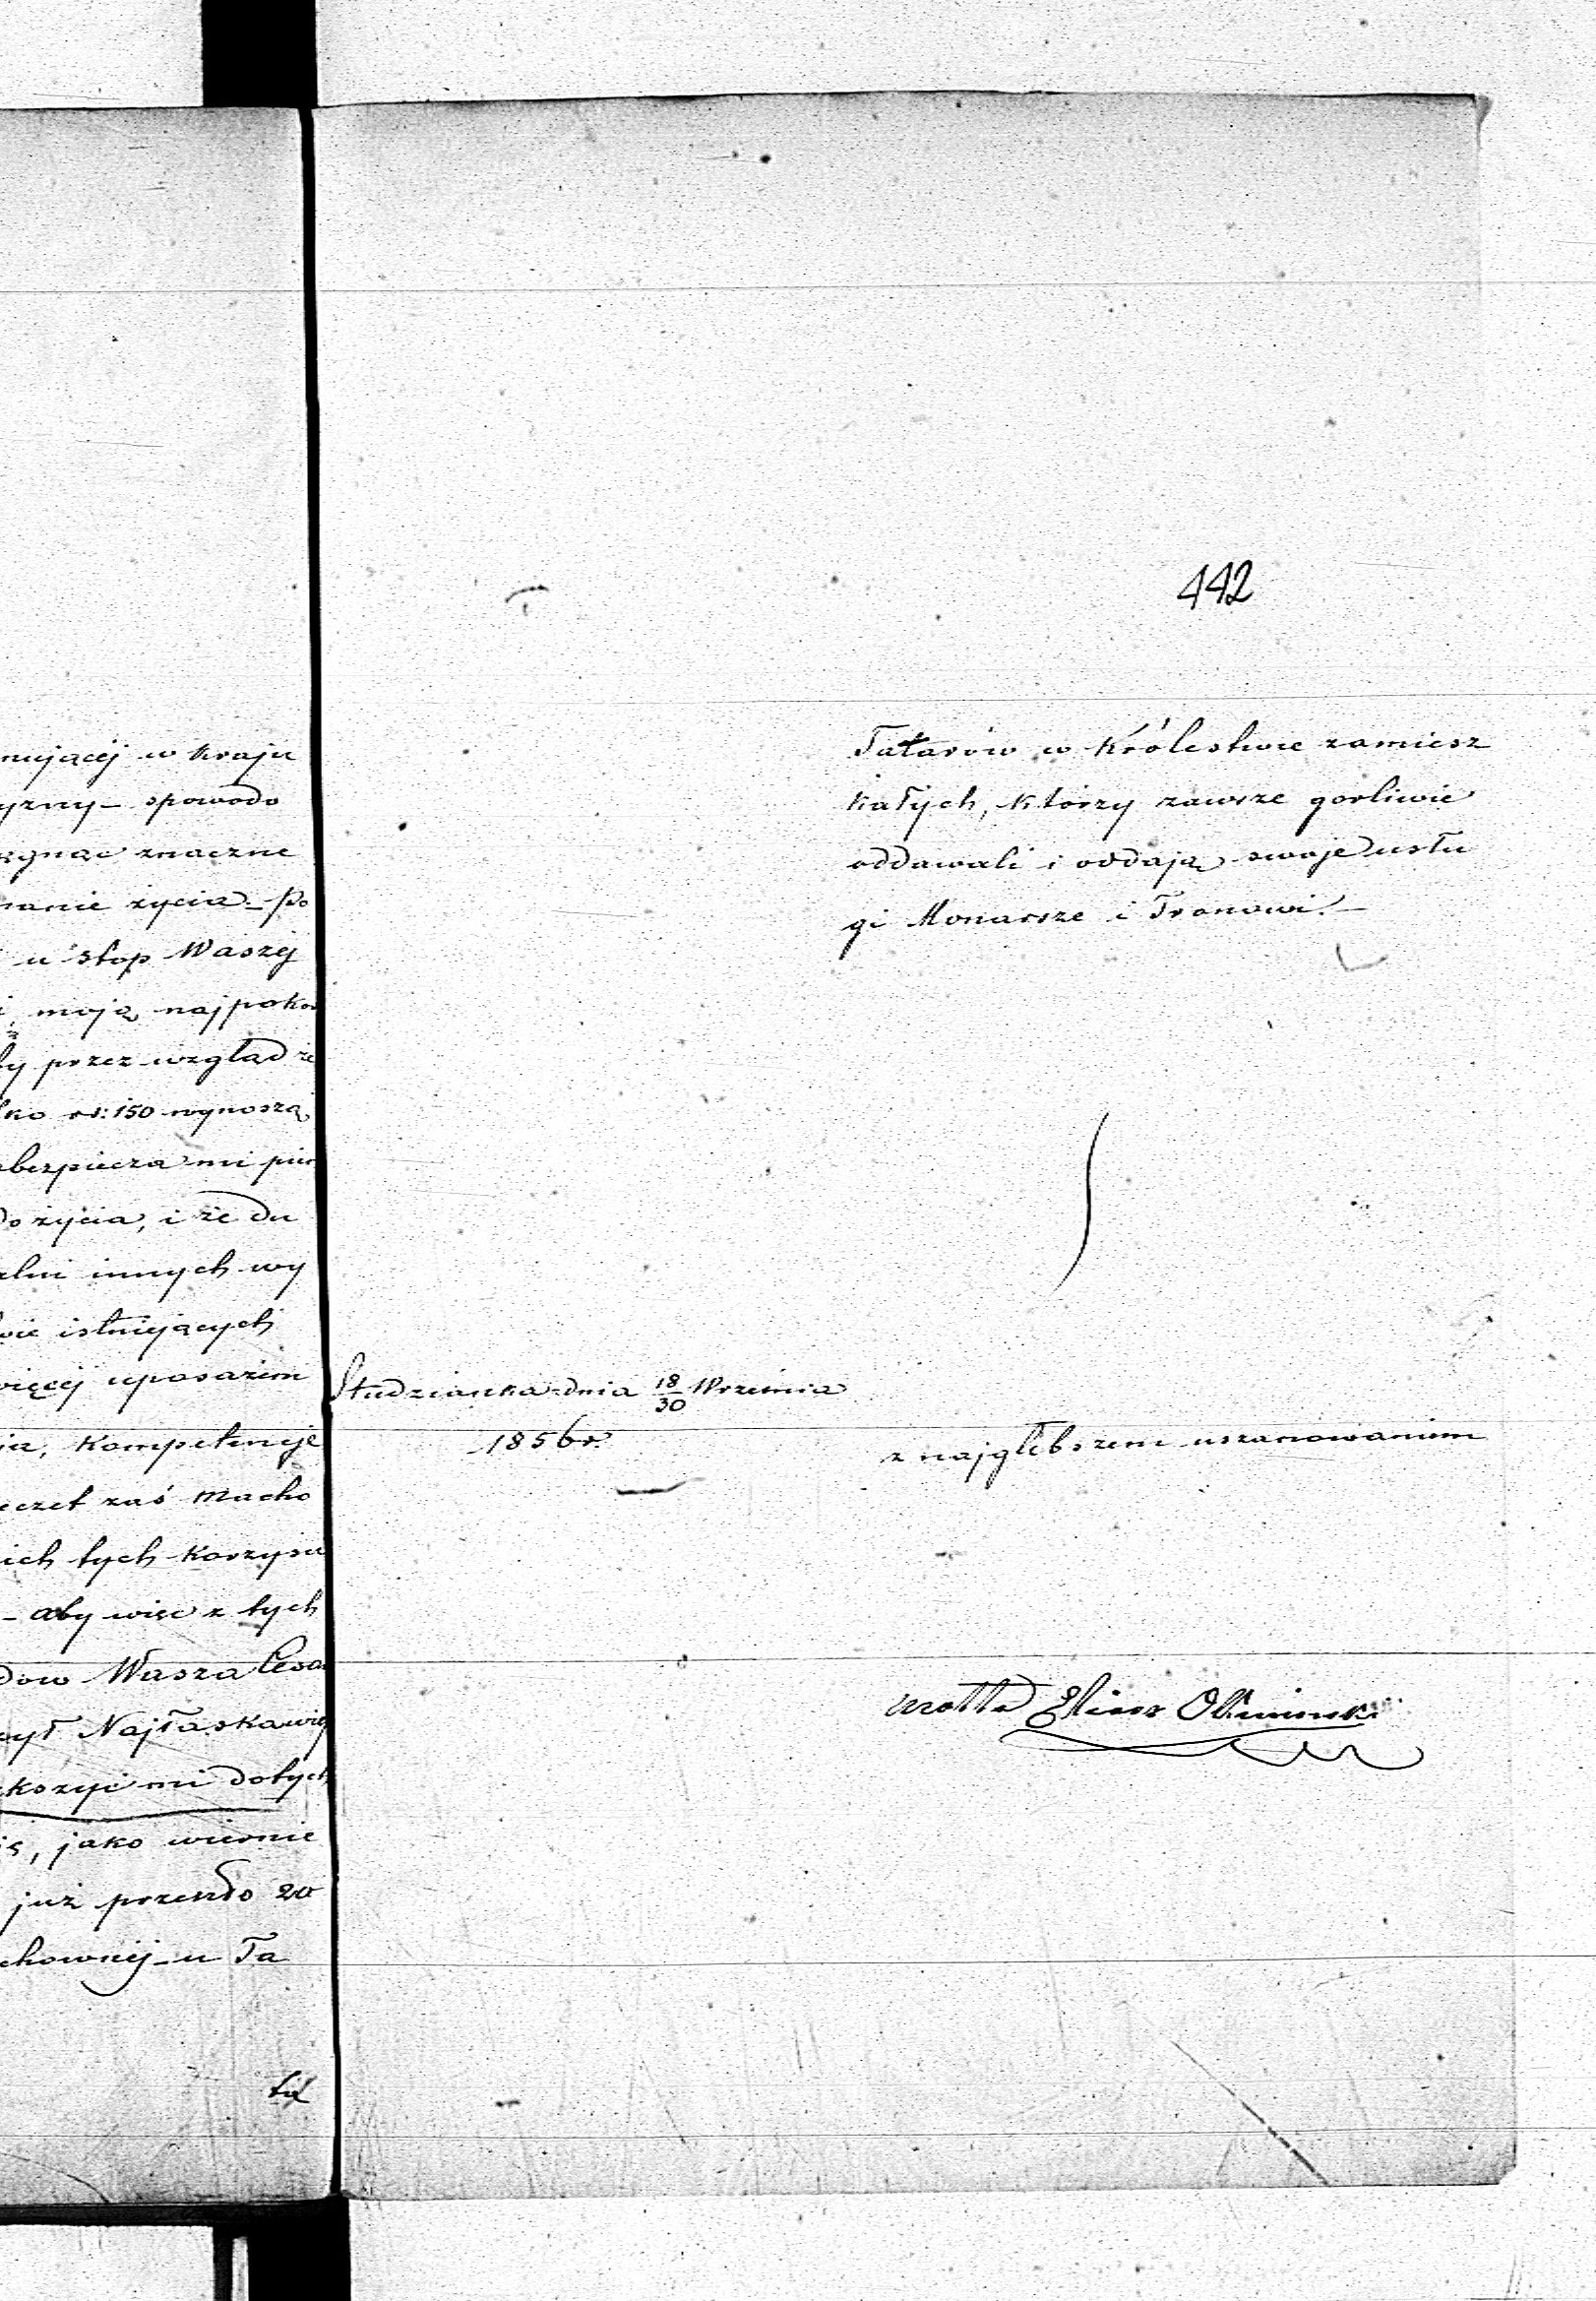 nującéj w kraju
yzny – spowodo
sygnąć znaczne
manie życia. – Po
u stóp Waszéj
moją najpokor
by przez wzgląd że
lko rs: 150 wynoszą,
abezpiecza mi pier
do życia, i że du
alni innych wy
wie istniejących
więcéj uposażeni
nia, kompetencje
eczet zaś Macho
ich tych korzyści
– aby więc z tych
dów Wasza Cesar
był Najłaskawiéj
kszyć mi dotych
is, jako wiernie
już przeszło 20
chownéj – u Ta
ta
442
Tatarów w Królestwie zamiesz
kałych, którzy zawsze gorliwie
oddawali i oddają swoje usłu
gi Monarsze i Tronowi. –
Studzianka dnia 18/30 Września
1856 r.
z najgłębszem uszanowaniem
Mołła Eliasz